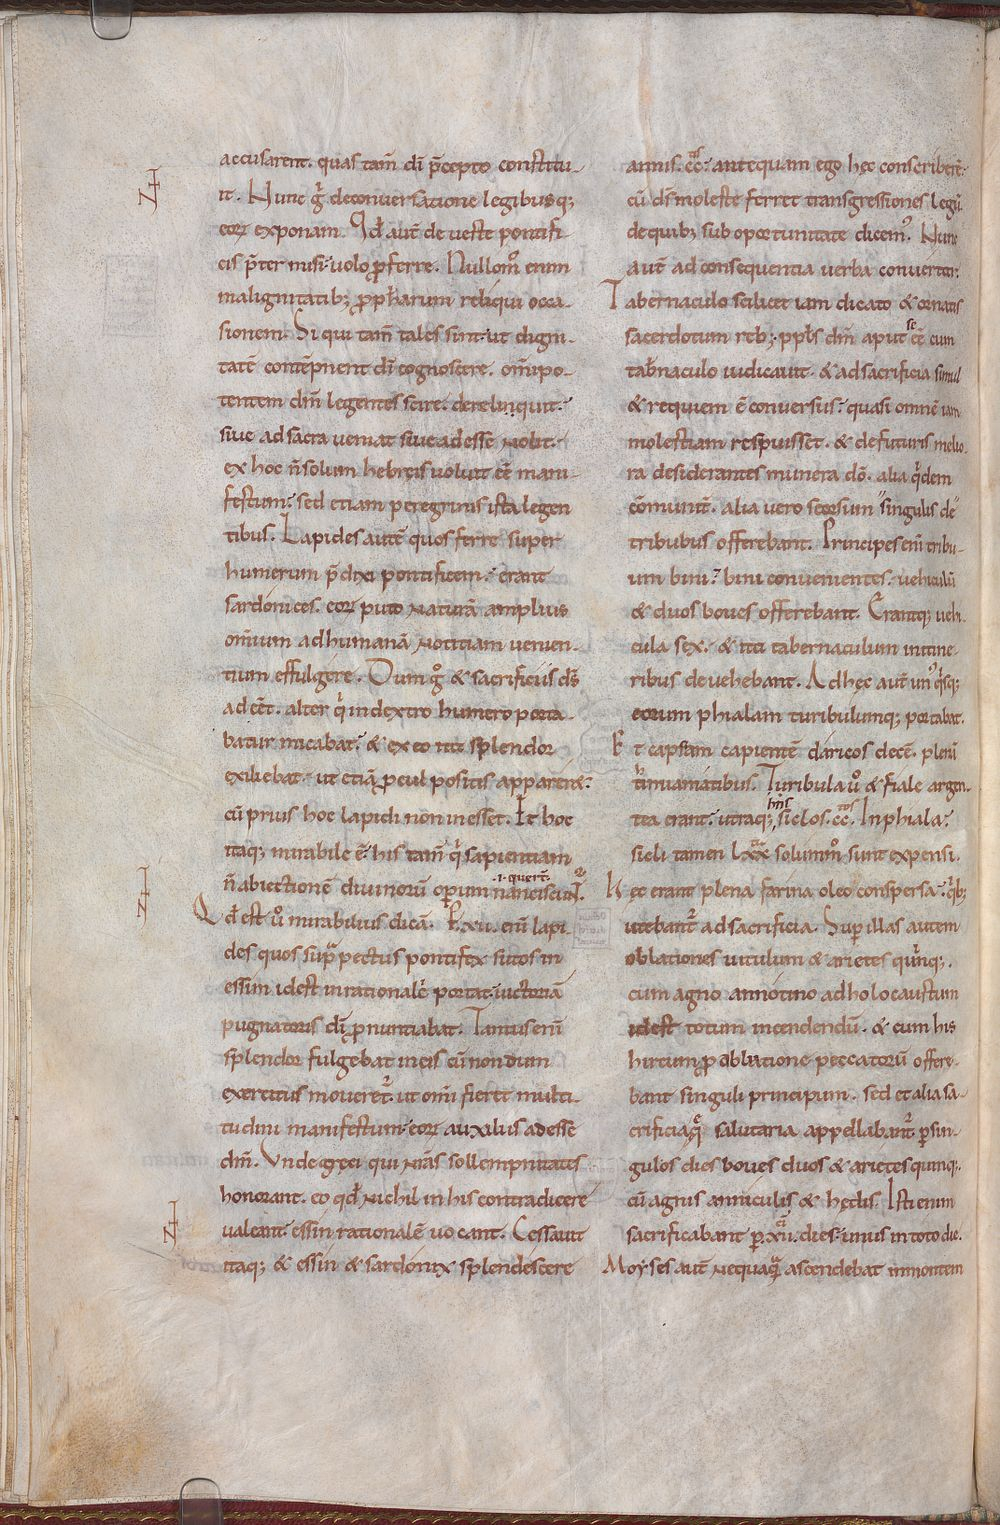 accusarent. quas tam̄ dī p̄cepto constitu-
it. Nunc gͥ deconuersatione legibusq;
eoꝝ exponam. Qd̄ aut̄ de ueste pontifi
cis p̄ter misi uolo ꝓferre. Nullom̊ enim
malignitatib; ꝓph̄arum reliqui occa-
sionem. Si qui tam̄ tales sint. ut digni-
tatē contēpnent dī cognoscere. om̄ipo-
tentem dm̄ legentes scire. derelinquit.
siue ad sacra ueniat siue adesse nolit.
ex hoc n̄ solum hebreis uoluit eē mani-
festum. sed etiam peregrinis ista legen
tibus. Lapides autē quos ferre super
humerum p̄dixi pontificem. erant
sardonices. eoꝝ puto naturā amplius
om̄ium adhumanā notitiam uenien-
tium effulgere. Dum gͦ & sacrificiis ds̄
adēet. alter qͥ indextro humero porta-
batur micabat. & ex eo ita splendor
exiliebat. ut etiā ꝓcul positis appareret.
cū prius hoc lapidi non inesset. Et hoc
itaq; mirabile ē. his tam̄ qͥ sapientiam
.i. querēt
n̄ abiectionē diuinorū operum nanciscunt̄.
Qd̄ est u̅ mirabilius dicā. P xii. enī lapi-
des quos supͣ pectus pontifex sutos in
essin idest in rationalē portat. uictoriā
pugnatoris dī ꝓnuntiabat. Tantus enī
splendor fulgebat in eis cū nondum
exercitus moueret̄. ut om̄i fieret multi-
tudini manifestum. eoꝝ auxiliis adesse
dm̄. Unde greci qui nr̄as sollempnitates
honorant. eo qd̄ nichil in his contradicere
ualeant. essin rationalē uocant. Cessauit
itaq; & essin & sardonix splendescere
annis. cc.tͦͥˢ antequam ego hęc conscriberē.
cū ds̄ moleste ferret transgressiones legū
de quib; sub oportunitate dicem᾽. Nunc
aut̄ ad consequentia uerba conuertar.
Tabernaculo scilicet iam dicato & ornatis
sacerdotum reb;. ppl̄s dm̄ aput se eē cum
tab̄naculo iudicauit. & ad sacrificia simul
& requiem ē conuersus. quasi omnē iam
molestiam respuisset. & de futuris melio-
ra desiderantes munera dō. alia qͥdem
cōmunit̄. alia uero seorsum singulis de
tribubus offerebant. Principes enī tribu-
um bini. bini conuenientes. uehiculū
& duos boues offerebant. Erantq; uehi-
cula sex. & ita tabernaculum initine-
ribus deuehebant. Ad hęc aut̄ un᾽ qͥsq;
eorum phialam turibulumq; portabat.
Et capsam capientē daricos decē. pleni
timiamatibus. Turibula u̅ & fiale argen-
tea erant. utraq; hn̄s siclos. cc.tͦˢ In phiala.
sicli tamen lxxͣ solumm̊ sunt expensi.
Hęc erant plena farina oleo conspersa. qͥb;
utebant̄ ad sacrificia. Sup illas autem
oblationes uitulum & arietes quinq;.
cum agno annotino ad holocaustum
idest totum incendendū. & cum his
hircum ꝓ oblatione peccatorū offere-
bant singuli principum. sed et alia sa-
crificia q̄ salutaria appellabant̄. ꝑ sin-
gulos dies boues duos & arietes quinq;.
cū agnis anniculis & hędis. Isti enim
sacrificabant ꝑ xii. dies. unus in toto die.
Moyses aut̄ nequaqͣ ascendebat inmontem